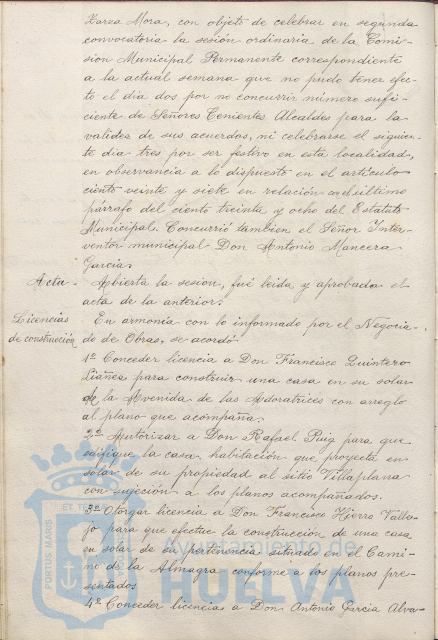 Zarza Mora, con objeto de celebrar en segunda
convocatoria la sesión ordinaria de la Comi-
sión Municipal Permanente correspondiente
a la actual semana que no pudo tener efec-
to el día dos por no concurrir número sufi-
ciente de Señores Tenientes Alcaldes para la
validez de sus acuerdos, ni celebrarse el siguien-
te día tres por ser festivo en esta localidad,
en observancia a lo dispuesto en el artículo
ciento veinte y siete en relación con el último
párrafo del ciento treinta y ocho del Estatuto
Municipal. Concurrió tambien el Señor Inter-
ventor municipal Don Antonio Mancera
García.
Acta. - Abierta la sesión, fué leida y aprobada el
acta de la anterior.
Licencias de construcción En armonía con lo informado por el Negocia-
do de Obras, se acordó
1º Conceder licencia a Don Francisco Quintero
Liáñez para construir una casa en su solar
de la Avenida de las Adoratrices con arreglo
al plano que acompaña.
2º Autorizar a Don Rafael Puig para que
edifique la casa habitación que proyecta en
solar de su propiedad al sitio Villaplana
con sujeción a los planos acompañados.
3º Otorgar licencia a Don Francisco Hierro Valle-
jo para que efectue la construcción de una casa
en solar de su pertenencia situado en el Cami-
no de la Almagra conforme a los planos pre-
sentados
4º Conceder licencia a Don Antonio García Alva-
PORTUS MARIS ET TERRAE
Ayuntamiento de
HUELVA